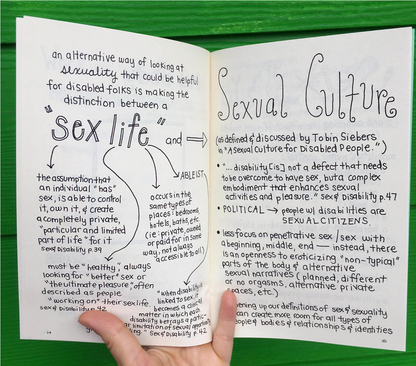 an alternative way of looking at
sexuality that could be helpful
for disabled folks is making the
distinction between a
"sex life" and
the assumption that
an individual "has"
sex, is able to control
it, own it, & create
a completely private,
"particular and limited
part of life" for it
Sex & Disability p.39
occurs in the
same types of
places: bedrooms,
hotels, baths, etc.
(ie: private, owned
or paid for in some
way, not always
accessible to all)
ABLEIST
must be "healthy," always
looking for "better" sex or
"the ultimate pleasure," often
described as people
"working on" their sex life.
Sex & Disability p.42
"when disability is
linked to sex, it
becomes a
matter in which each
disability betrays a
limitation of sexual
Sex & Disability p.42
Sexual Culture
(as defined & discussed by Tobin Siebers
in "A Sexual Culture for Disabled People.")
• "... disability [is] not a defect that needs
to be overcome to have sex, but a complex
embodiment that enhances sexual
activities and pleasure." Sex & Disability p.47
• POLITICAL → people w/ disabilities are
SEXUAL CITIZENS.
• less focus on penetrative sex/sex with
a beginning, middle, end — instead, there
is an openness to eroticizing "non-typical"
parts of the body & alternative
sexual narratives (planned, different
or no orgasms, alternative private
spaces, etc.)
our definitions of sex & sexuality
can create more room for all types of
people & bodies & relationships & identities